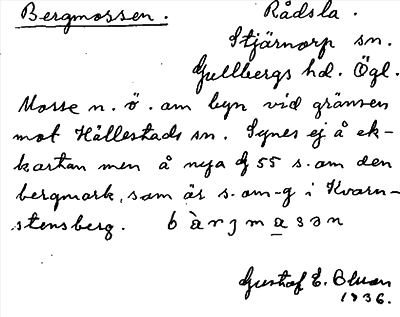 Bergmossen.
Rådsla.
Stjärnorp sn.
Gullbergs hd. Ögl.
Mosse n. ö. om byn vid gränsen
mot Hällestads sn. Synes ej å ek-
kartan men å nya G 55 s. om den
bergmark, som är s. om-g i Kvarn-
stensberg. bàrjmåsən
Gustaf E. Bluon
1936.